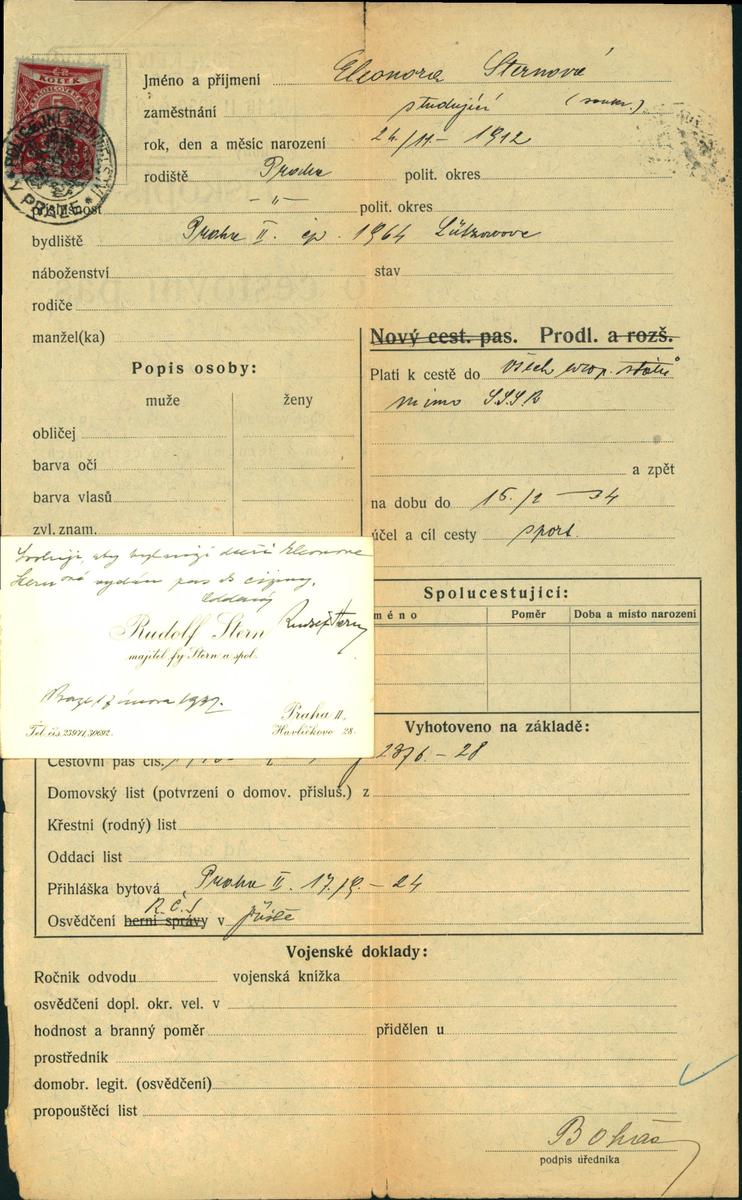 KOLEK
5
POLICEJNÍ ŘEDITELSTVÍ
V PRAZE
Jméno a příjmení Eleonora Sternová
zaměstnání studující (soukr.)
rok, den a měsíc narození 24/11 – 1912
rodiště Praha polit. okres
– " – polit. okres
bydliště Praha II. čp. 1964 Lützowova
náboženství stav
rodiče
manžel(ka)
Nový cest. pas. Prodl. a rozš.
Popis osoby:
muže ženy
Platí k cestě do všech evrop. států
mimo SSSR
obličej
barva očí
a zpět
barva vlasů
na dobu do 15/2 – 34
zvl. znam.
účel a cíl cesty sport.
Svoluji, aby byl mojí dceři Eleonoře
Sternové vydán pas do ciziny.
Oddaný
Rudolf Stern
Rudolf Stern
majitel fy Stern a spol.
února
Praha II.
Tel. čís. 23971, 30692. Havlíčkovo 28.
Spolucestující:
méno Poměr Doba a místo narození
Vyhotoveno na základě:
Cestovní pas čís. 2376 – 28
Domovský list (potvrzení o domov. přísluš.) z
Křestní (rodný) list
Oddací list
Přihláška bytová Praha II. 17./9. – 24
R.Č.S
Osvědčení berní správy v
Vojenské doklady:
Ročník odvodu vojenská knížka
osvědčení dopl. okr. vel. v
hodnost a branný poměr přidělen u
prostředník
domobr. legit. (osvědčení)
propouštěcí list
Boháč
podpis úředníka